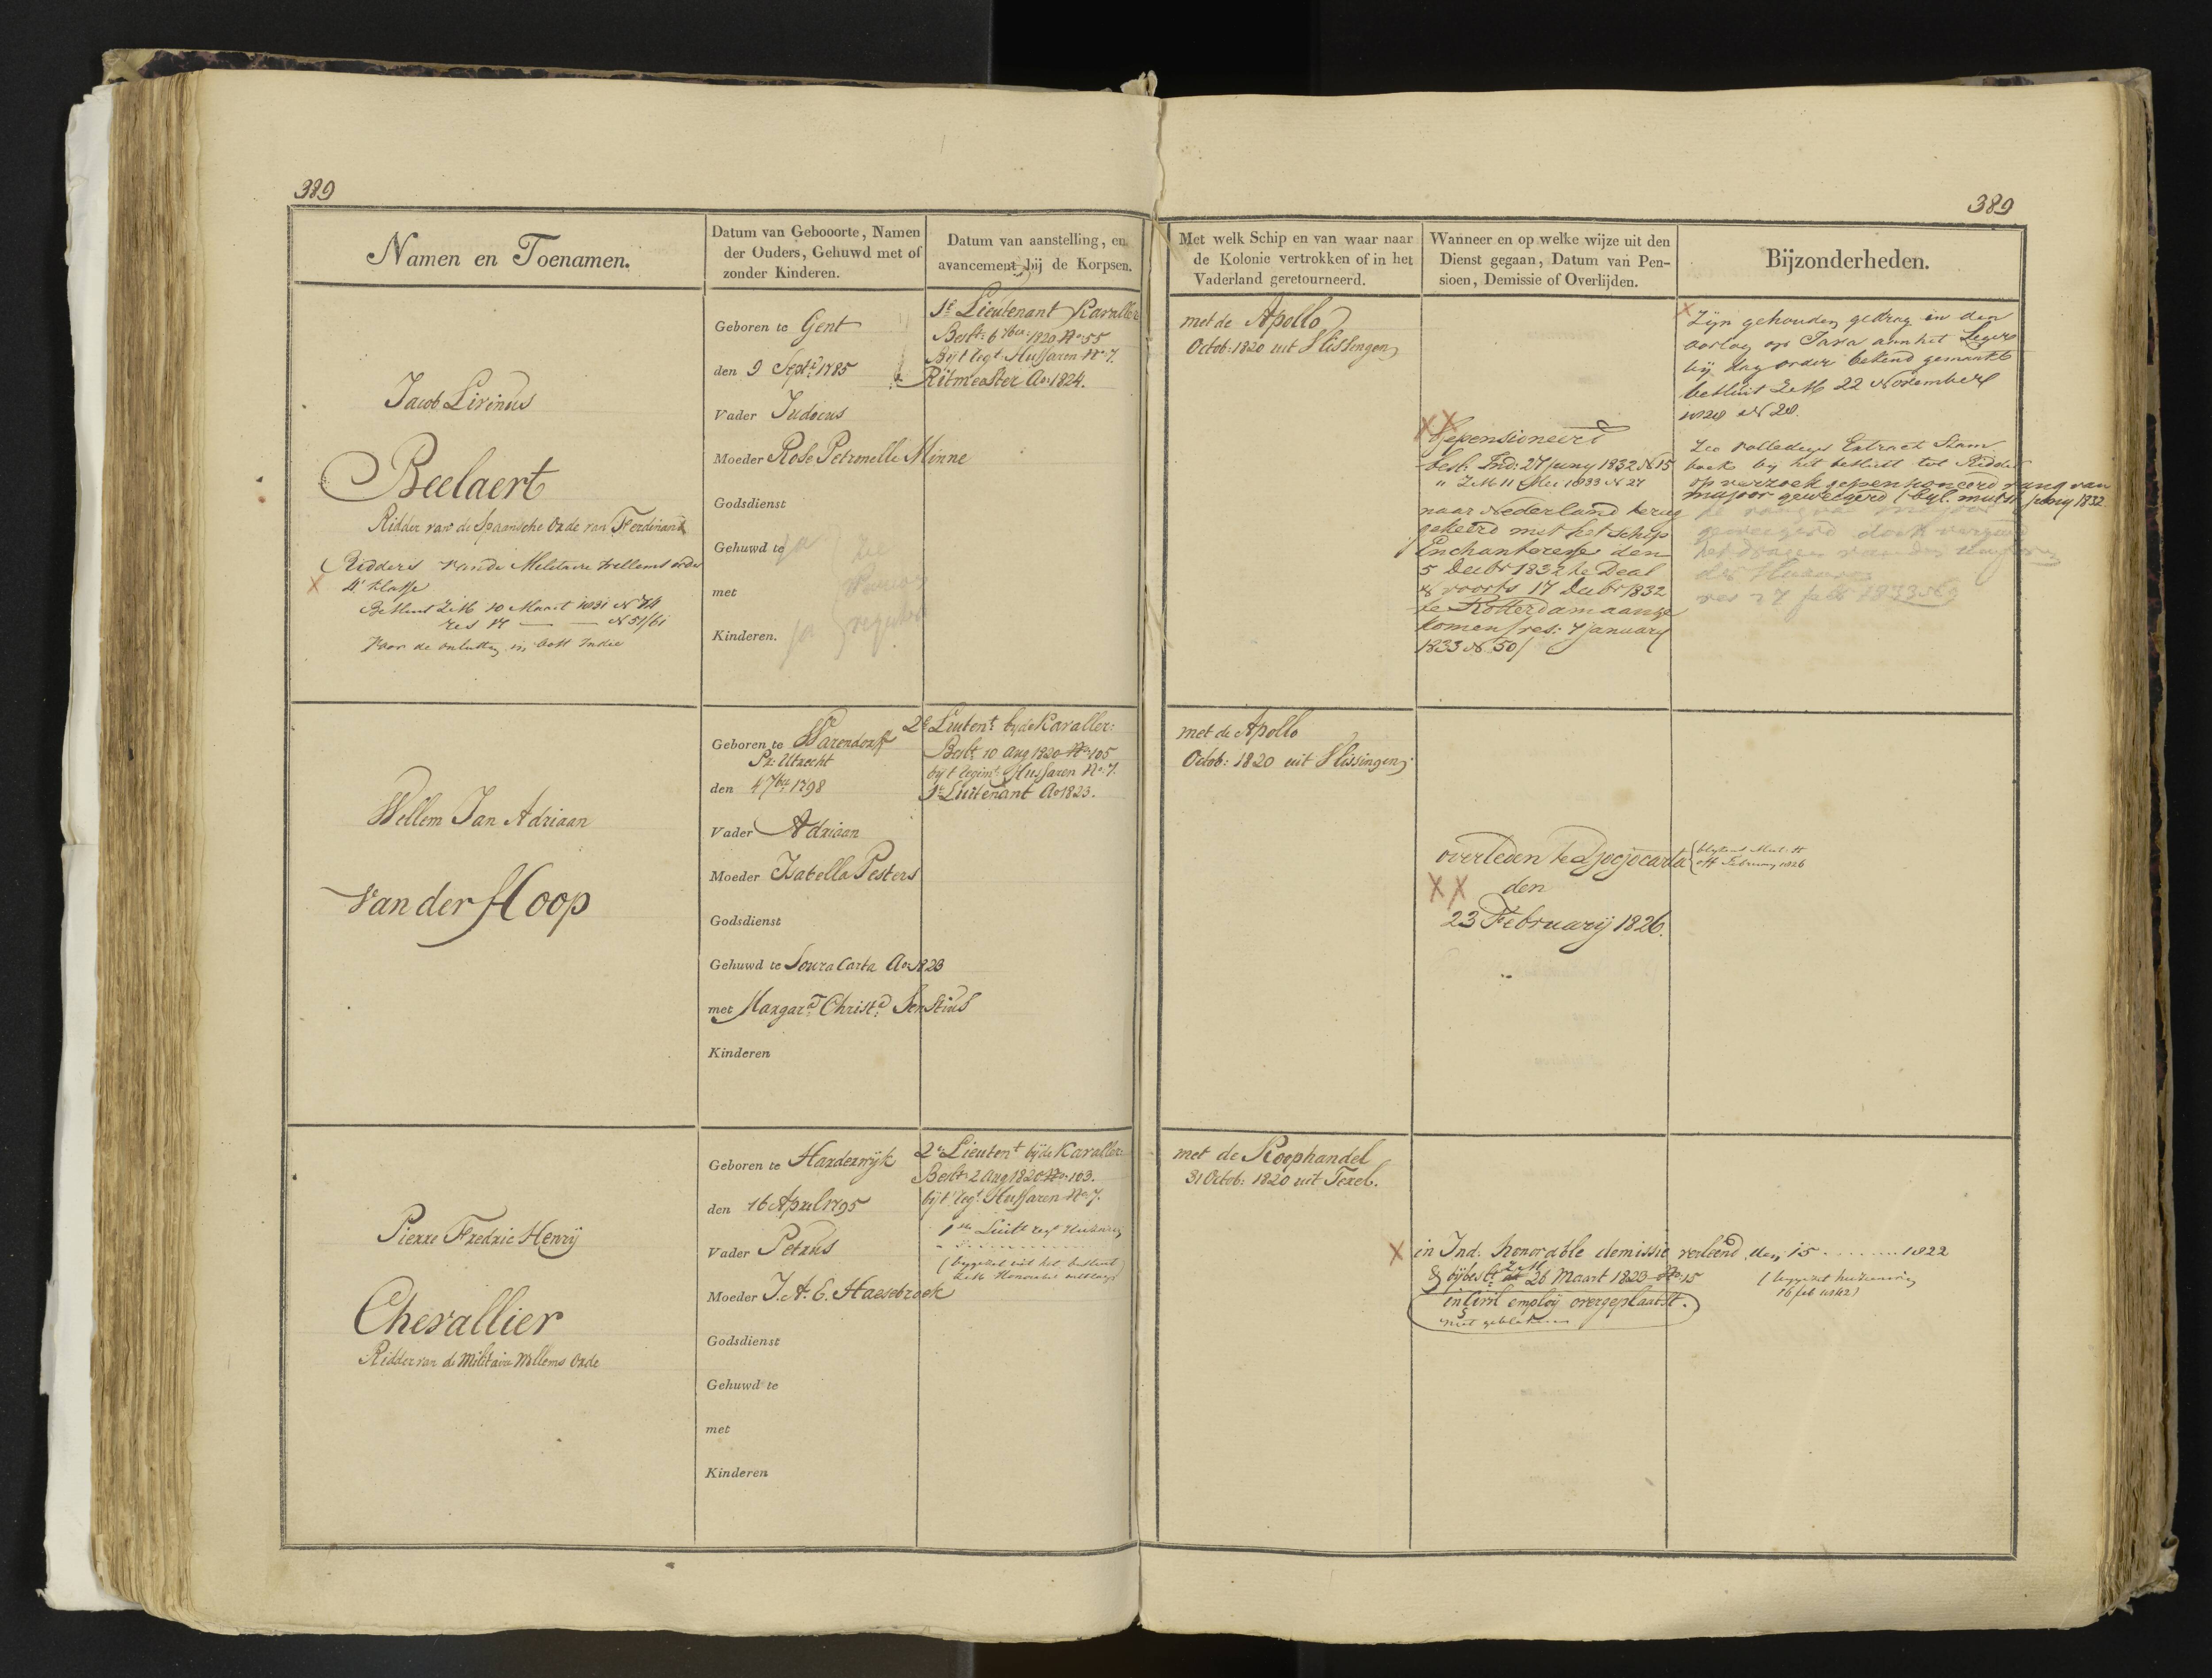 389
389
Namen en Toenamen.
Datum van Gebooorte, Namen
der Ouders, Gehuwd met of
zonder Kinderen.
Datum van aanstelling, en
avancement bij de Korpsen.
Met welk Schip en van waar naar
de Kolonie vertrokken of in het
Vaderland geretourneerd.
Wanneer en op welke wijze uit den
Dienst gegaan, Datum van Pen-
sioen, Demissie of Overlijden.
Bijzonderheden.
Jacob Livinus
Beelaert
Ridder van de Spaansche Orde van Ferdinand
Ridder van de Militaire Willems orde
X 4e klasse
Besluit ZM 10 Maart 1831 N 74
res 17 — — N 51/61
Voor de onlusten in Oost Indie
Geboren te Gent
den 9 Septr 1785
Vader Judocus
Moeder Rose Petronelle Minne
Godsdienst
Gehuwd te ja
met
Kinderen. ja
1e Lieutenant Kavaller
Beslt: 6 7ber 1820 No 55
Bij t regt: Hussaren No 7.
Ritmeester Ao 1824.
met de Apollo
Octob: 1820 uit Vlissingen
XX
Gepensioneerd
besl: Ind: 27 juny 1832 N 15
" ZM 11 Mei 1833 N 27
naar Nederland terug
gekeerd met het schip
Enchanteresse den
5 Decbr 1832 te Deal
& voorts 17 Decbr 1832
te Rotterdam aange
komen /res: 7 january
1833 N 50/
X
Zijn gehouden gedrag in den
oorlog op Java aan het Leger
bij dag order bekend gemaakt
besluit ZM 22 November
1828 N 28.
Zeo volledigs Extract Stam
boek by het besluit tot Ridder
op verzoek gepensioneerd rang van
majoor geweigerd juny 1832
de rang van majoor
geweigerd doch vergund
het dragen van den uniform
der Husaren
res 27 feb 1833
Willem Jan Adriaan
Van der Hoop
Geboren te Warendorff
Pr: Utrecht
den 4 7ber 1798
Vader Adriaan
Moeder Isabella Pesters
Godsdienst
Gehuwd te Soura Carta Ao 1823
met Margara Christa
Kinderen
2e Lieutent bij de Kavaller:
Beslt 10 Aug 1820 No 105
bij t regimt Hussaren No 7.
1e Luitenant Ao 1823.
met de Apollo
Octob: 1820 uit Vlissingen
overleden te Djocjocarta
XX den
23 February 1826.
off February 1826
Pierre Fredric Henrij
Chevallier
Ridder van de Militaire Willems Orde
Geboren te Harderwijk
den 16 April 1795
Vader Petrus
Moeder J. A. E. Haesebroek
Godsdienst
Gehuwd te
met
Kinderen
2e Lieutent bij de Kavaller:
Beslt 2 Aug 1820 No 103.
bij t regt Hussaren No 7.
1ste Luit regt Husaren
(bygezet uit het besluit
ZM Honorabel ontslag)
met de Koophandel
31 Octob: 1820 uit Texel.
X in Ind: honorable demissie verleend den 15 ........ 1822
& bij beslt ZM 26 Maart 1823 No 15
in Civil employ overgeplaatst.
niet gebleken
16 feb 1842)